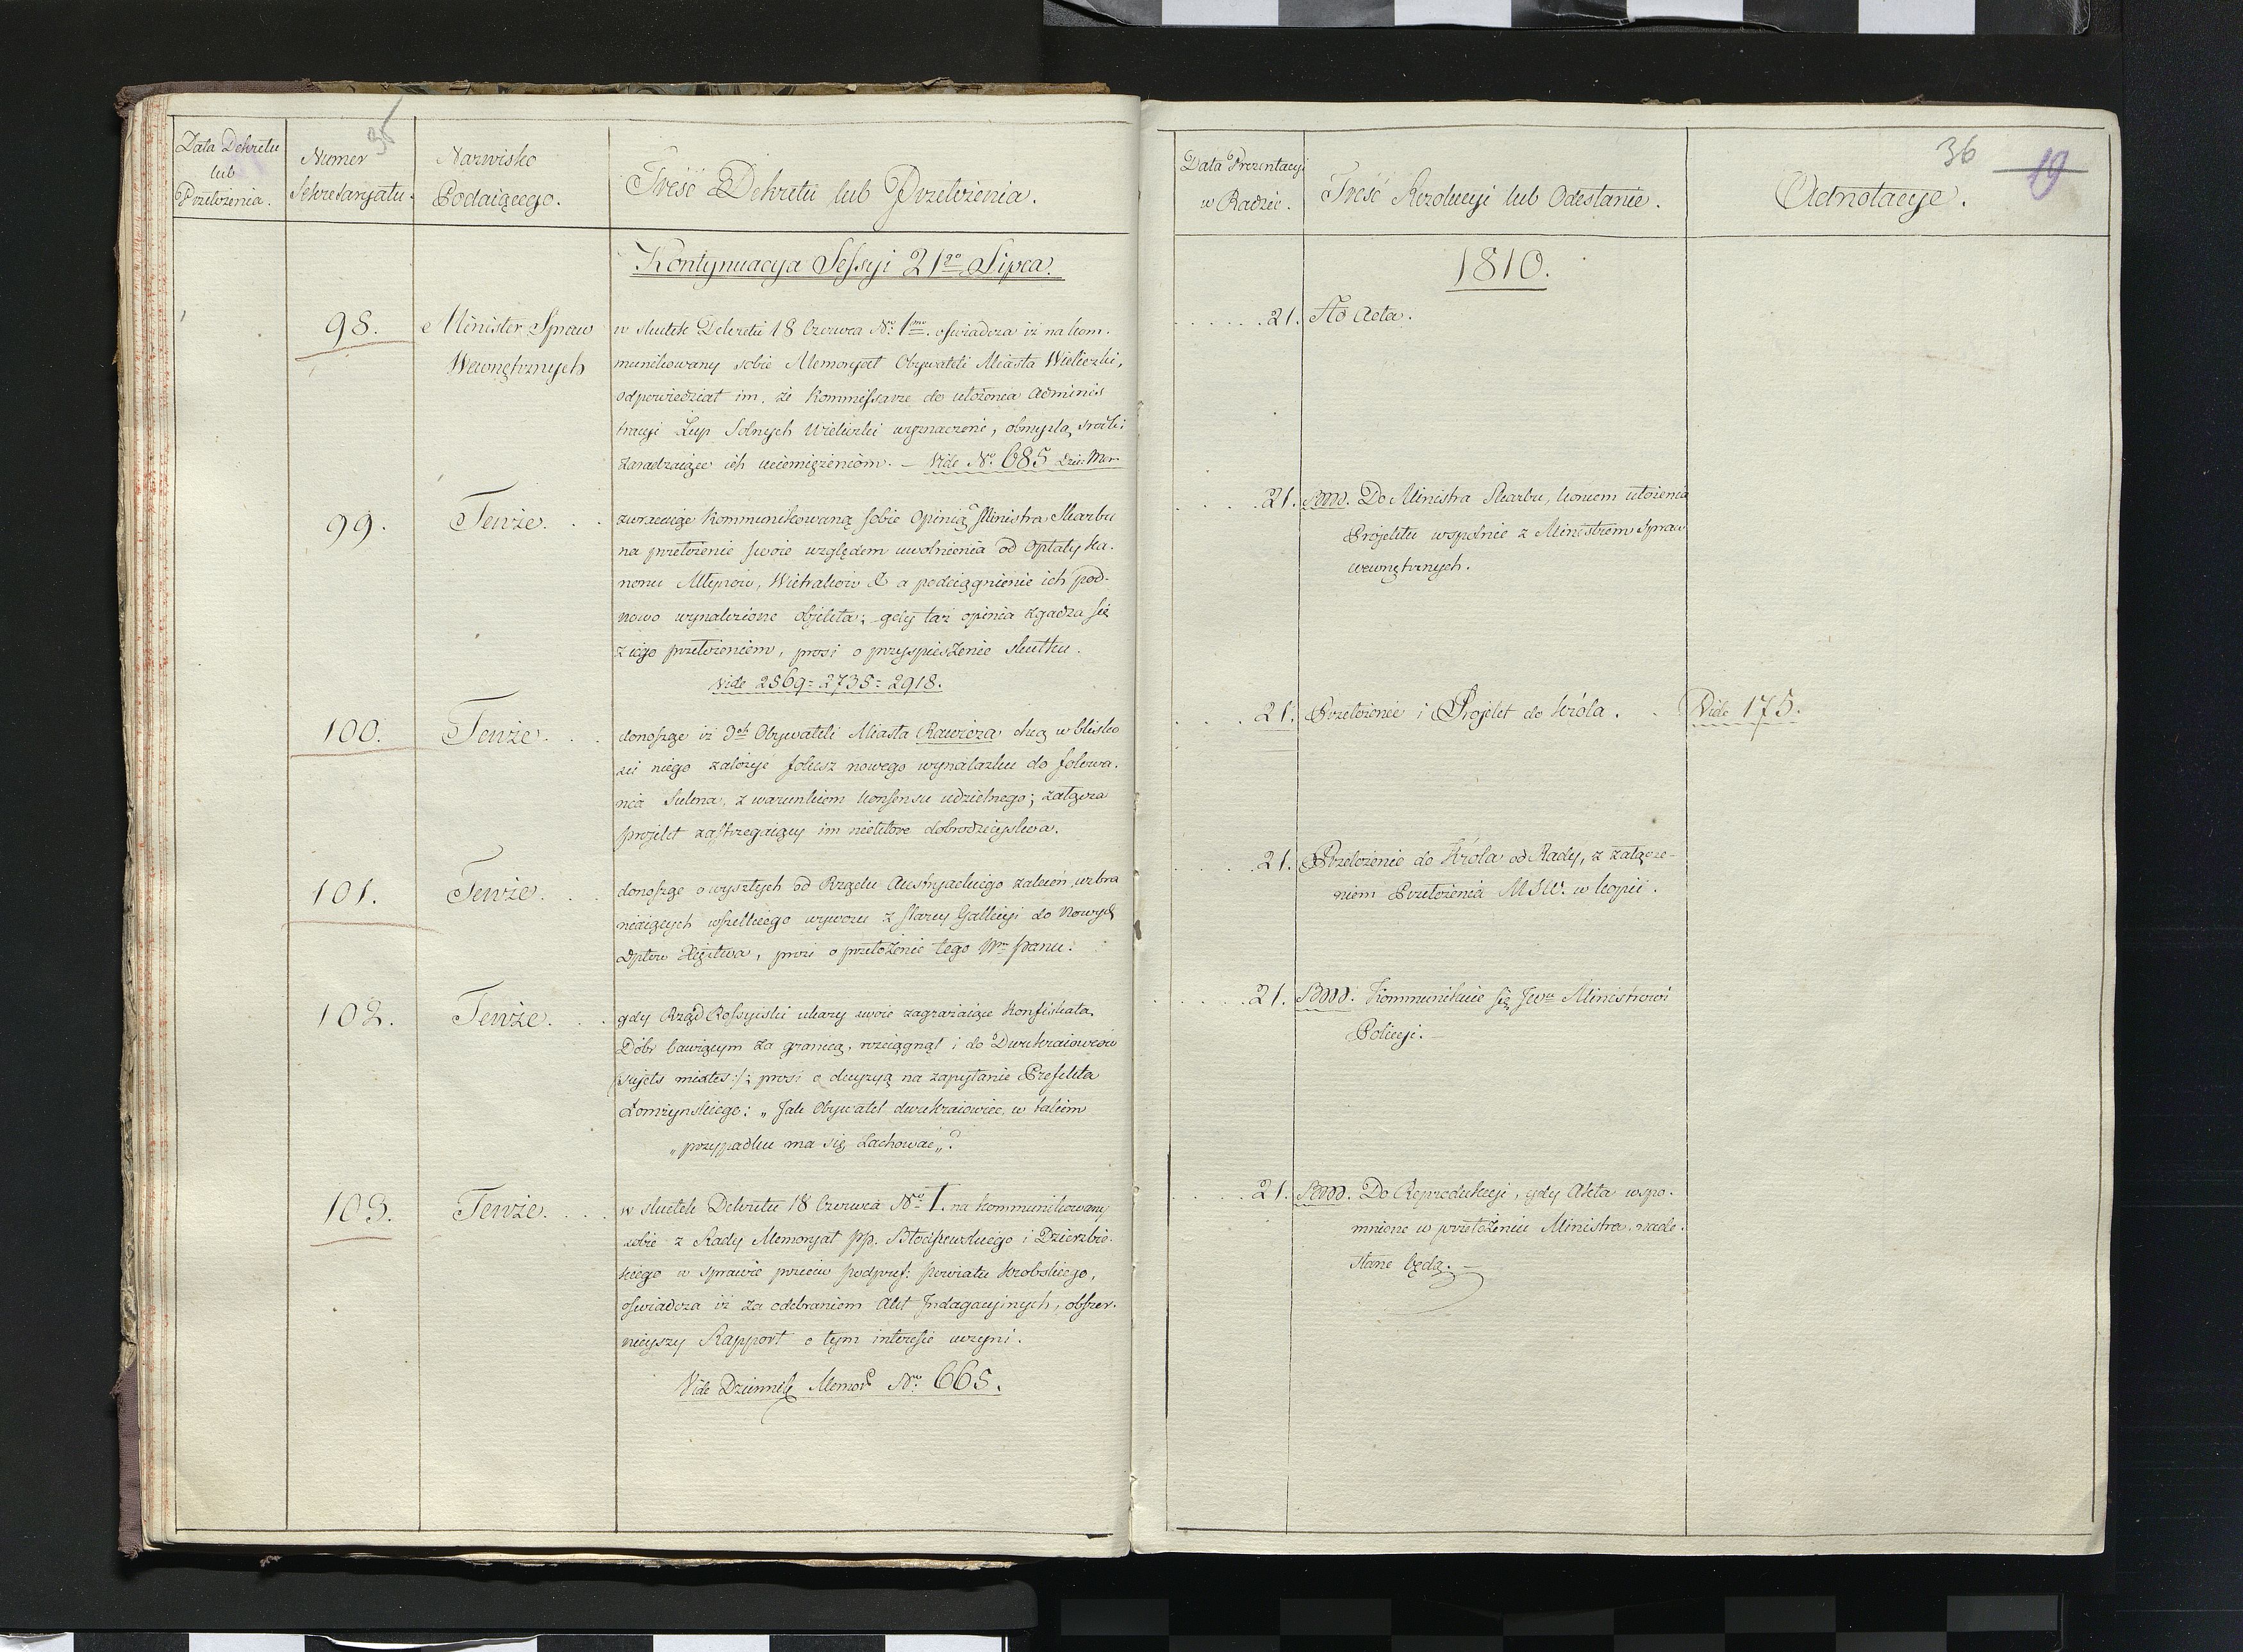 35
Data Dekretu
lub
Przełożenia.
Numer
Sekretaryatu.
Nazwisko
Podaiącego.
Treść Dekretu lub Przełożenia.
Kontynuacya Sessyi 21go Lipca.
98.
Minister Spraw
Wewnętrznych
w skutek Dekretu 18 Czerwca No 1mo. oświadcza iż na kom.
munikowany sobie Memoryał Obywateli Miasta Wieliczki,
odpowiedział im, że Kommissarze do ułożenia adminis
tracyi Żup Solnych Wieliczki wyznaczeni, obmyślą srodki
zaradzaiące ich uciemiężeniom. – Vide No. 685 Dzien: Mem.
99.
Tenże. . .
zwracaiąc kommunikowaną sobie Opinią Ministra Skarbu
na przełożenie swoie względem uwolnienia od opłaty ka.
nonu Młynów, Wiatraków & a podciągnienie ich pod-
nowo wynalezione objekta; gdy taż opinia zgadza się
z iego przełożeniem, prosi o przyspieszenie skutku.
Vide 2569 = 2735 = 2918.
100.
Tenże. . .
donosząc iż 3ch Obywateli Miasta Rawicza chcą w blisko
ści niego założyć folusz nowego wynalazku do folowa.
nia Sukna, z warunkiem konsensu udzielnego; załącza
projekt zastrzegaiący im niektóre dobrodzieystwa.
101.
Tenże. . .
donosząc o wyszłych od Rządu Austryackiego zaleceń, wzbra
niaiących wszelkiego wywozu z starey Gallicyi do Nowych
Dptow Xięstwa, prosi o przełożenie tego Nmu Panu.
102.
Tenże. . .
gdy Rząd Rossyiski ukazy swoie zagrażaiące Konfiskatą
Dóbr bawiącym za granicą, rozciągnął i do Dwukraiowców
/:sujets mixtes:/; prosi o decyzyą na zapytanie Prefekta
Łomżyńskiego: „Jak Obywatel dwukraiowiec w takim
„przypadku ma się zachować„?
103.
Tenże. . . .
w skutek Dekretu 18 Czerwca No I. na kommunikowany
sobie z Rady Memoryał pp. Błociszewskiego i Dzierzbic.
kiego w sprawie przeciw podpref: powiatu Krobskiego,
oświadcza iż za odebraniem Akt Indagacyinych, obszer.
nieyszy Rapport o tym interesie uczyni.
Vide Dziennik Memor: No. 665.
36
19
Data Prezentacyi
w Radzie.
Treść Rezolucyi lub Odesłanie.
Adnotacye.
1810.
. . . . . . 21. Ad Acta.
. . . . 21. Do Ministra Skarbu, koncem ułożenia
Projektu wspolnie z Ministrem Spraw
wewnętrznych.
. . . . 21. Przełożenie i Projekt do Króla. . . Vide 175.
. . . . 21. Przełożenie do Króla od Rady, z załącze-
niem Przełożenia MSW. w kopii.
. . . . . 21. Kommunikuie się Jwu Ministrowi
Policyi. –
. . . . 21. Do Reprodukcyi, gdy Akta wspo.
mnione w przełożeniu Ministra, nade.
słane będą. –